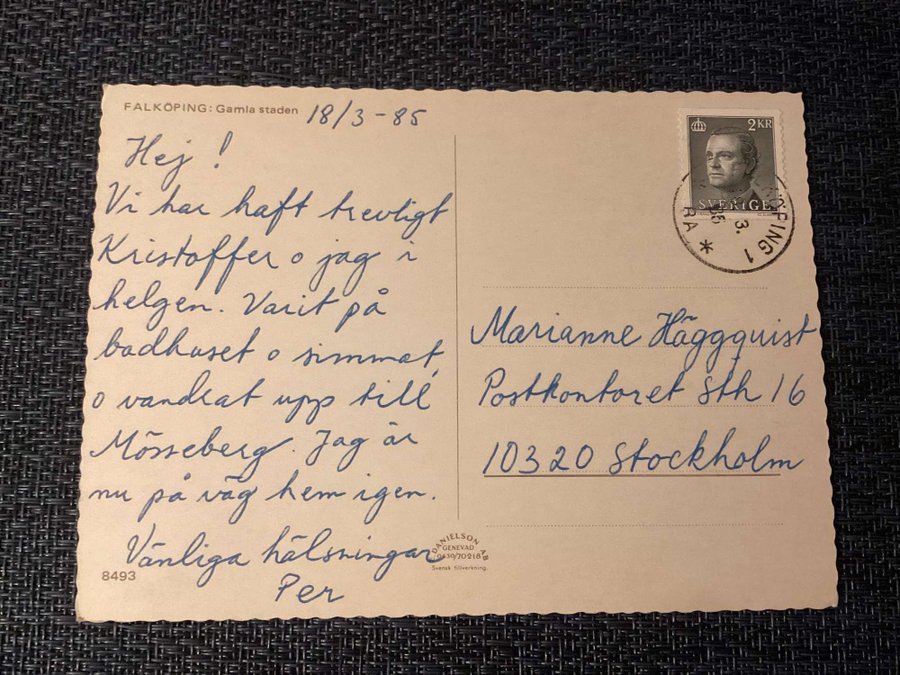 FALKÖPING: Gamla staden
18/3-85
Hej!
Vi har haft trevligt
Kristoffer o jag i
helgen. Varit på
badhuset o simmat,
o vandrat upp till
Mösseberg. Jag är
nu på väg hem igen.
Vänliga hälsningar
Per
8493
2 KR
SVERIGE
KÖPING 1
3.
85
RA *
Marianne Häggquist
Postkontoret Sth 16
10320 Stockholm
DANIELSON AB
GENEVAD
0430/70218
Svensk tillverkning.